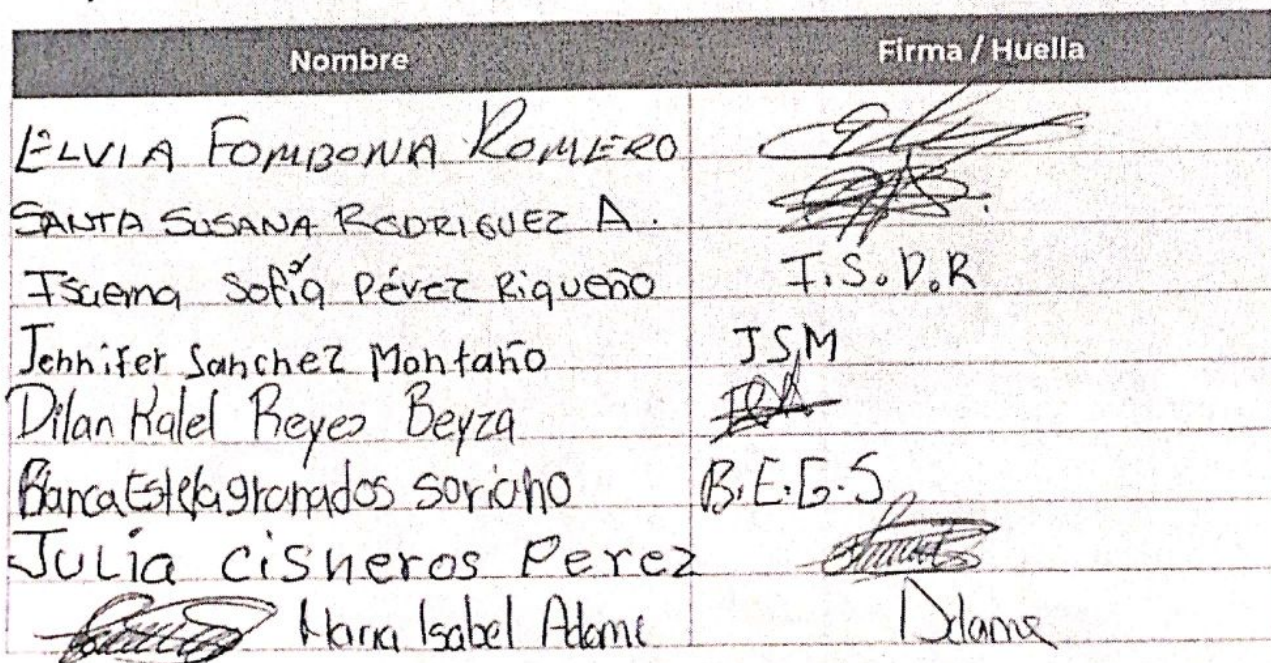 Nombre Firma / Huella
ELVIA FOMBONA ROMERO
SANTA SUSANA RODRIGUEZ A.
Sofía Pérez Riqueño I.S.P.R
Jennifer Sanchez Montaño JSM
Dilan Kalel Reyes Beyza
Blanca Estela granados soriano B.E.G.S
Julia cisneros Perez
Maria Isabel Adame Adame